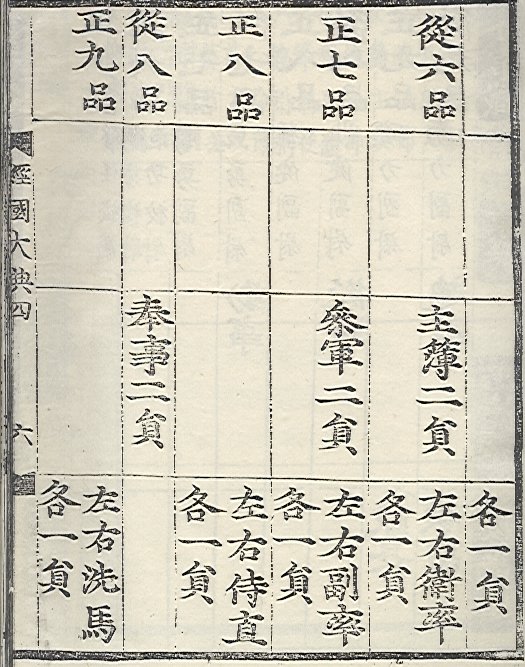 各一貟
從六品
主簿二貟
左右衛率
各一貟
正七品
叅軍二貟
左右副率
各一貟
正八品
左右侍直
各一貟
從八品
奉事二貟
正九品
左右洗馬
各一貟
經國大典四
六